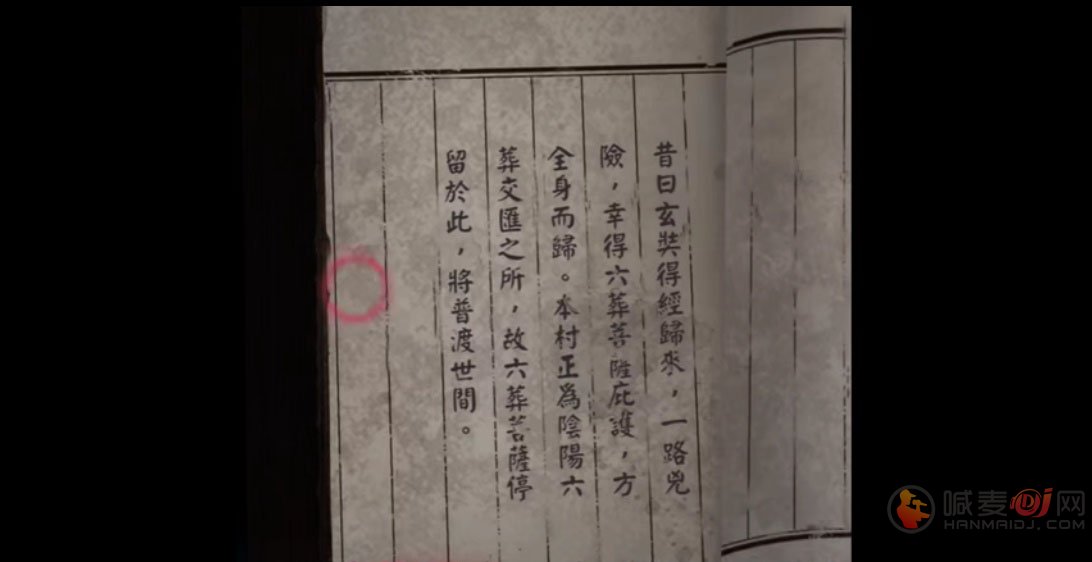 昔日玄奘得經歸來，一路兇
險，幸得六葬菩薩庇護，方
全身而歸。本村正為陰陽六
葬交匯之所，故六葬菩薩停
留於此，將普渡世間。
喊麦DJ网
HANMAIDJ.COM